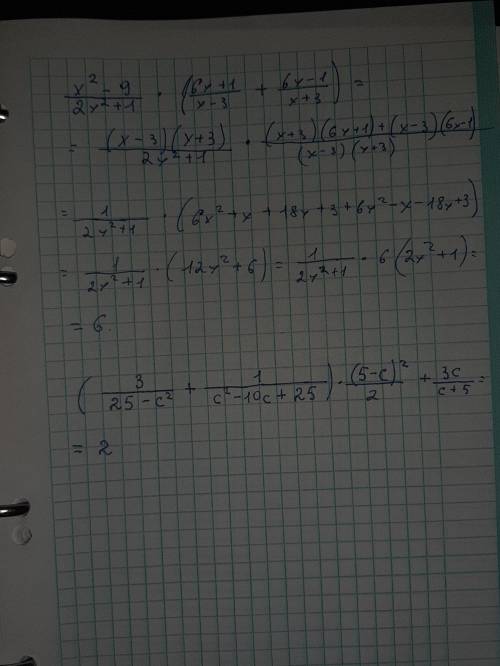 (x² - 9)/(2x² + 1) · ((6x+1)/(x-3) + (6x-1)/(x+3)) =
= ((x-3)(x+3))/(2x²+1) · ((x+3)(6x+1)+(x-3)(6x-1))/((x-3)(x+3))
= 1/(2x²+1) · (6x²+x+18x+3+6x²-x-18x+3)
= 1/(2x²+1) · (12x²+6) = 1/(2x²+1) · 6(2x²+1) =
= 6.
(3/(25-c²) + 1/(c²-10c+25)) · (5-c)²/2 + 3c/(c+5) =
= 2